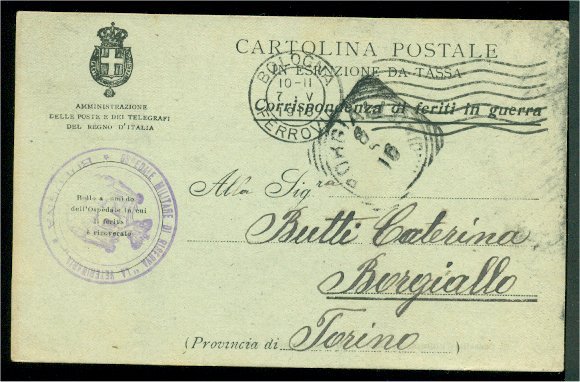 CARTOLINA POSTALE
IN ESENZIONE DA TASSA
Corrispondenza di feriti in guerra
AMMINISTRAZIONE
DELLE POSTE E DEI TELEGRAFI
DEL REGNO D'ITALIA
BOLOGNA
10-11
7 V
FERROV
OSPEDALE MILITARE DI RISERVA
"LA VETERINARIA"
Bollo a umido
dell'Ospedale in cui
il ferito
è ricoverato
Alla Sig.ra
Butti Caterina
Borgiallo
(Provincia di Torino